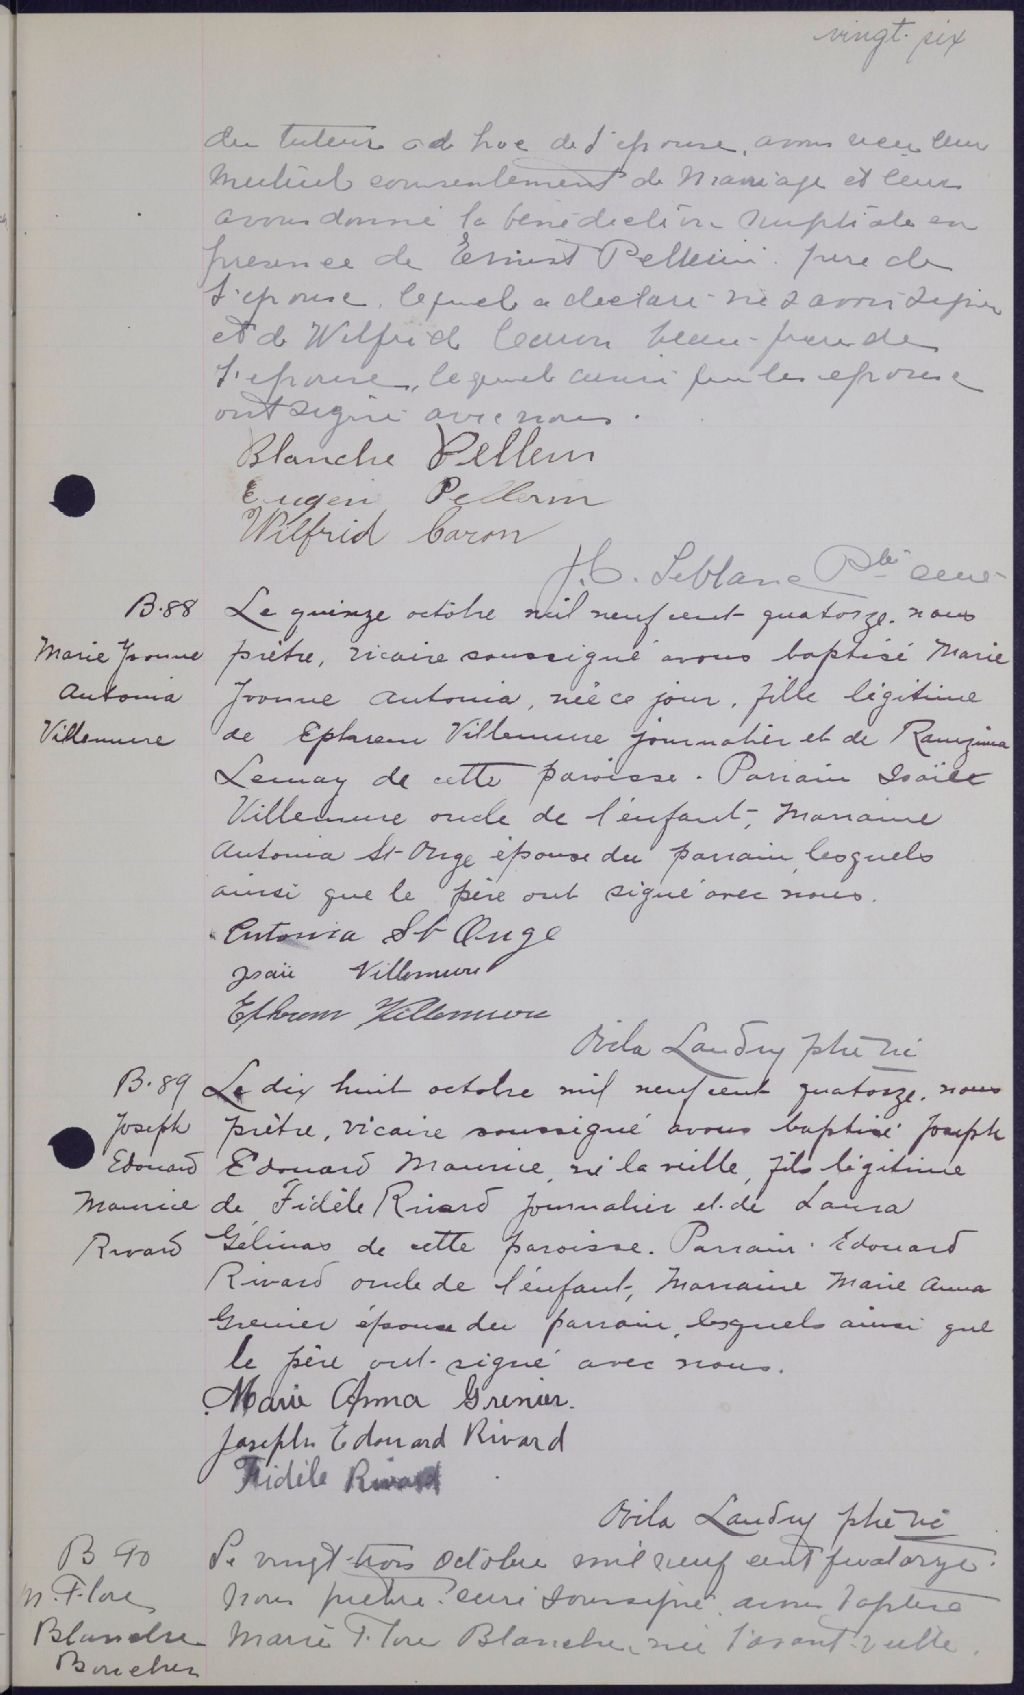 vingt-six
du tuteur ad hoc de l'epouse, avons reçu leur
mutuel consentement de Mariage et leur
avons donné la bénédiction nuptiale en
presence de Ernest Pellerin père de
l'epouse, lequel a declaré ne savoir signer
et de Wilfrid Caron beau-frere de
l'epouse, lequel ainsi que les epouse
ont signé avec nous.
Blanche Pellerin
Eugen Pellerin
Wilfrid Caron
J. C. Leblanc Ptre curé
B. 88 Le quinze octobre mil neuf cent quatorze, nous
Marie Yvonne prêtre, vicaire soussigné avons baptisé Marie
Antonia Yvonne Antonia, née ce jour, fille légitime
Villemure de Ephrem Villemure journalier et de
Lemay de cette paroisse. Parrain Isaïe
Villemure oncle de l'enfant, Marraine
Antonia St-Onge épouse du parrain lesquels
ainsi que le père ont signé avec nous.
Antonia St Onge
Isaïe Villemure
Ephrem Villemure
Ovila Landry ptre vic
B. 89 Le dix huit octobre mil neuf cent quatorze, nous
Joseph prêtre, vicaire soussigné avons baptisé Joseph
Edouard Edouard Maurice, né la veille, fils légitime
Maurice de Fidèle Rivard journalier et de Laura
Rivard Gélinas de cette paroisse. Parrain Edouard
Rivard oncle de l'enfant, Marraine Marie Anna
Grenier épouse du parrain, lesquels ainsi que
le père ont signé avec nous.
Marie Anna Grenier.
Joseph Edouard Rivard
Fidèle Rivard
Ovila Landry ptre vic
B 90 Le vingt-trois octobre mil neuf cent quatorze.
M. Flore Nous prêtre curé soussigné avons baptisé
Blanche Marie Flore Blanche, née l'avant-veille,
Boucher